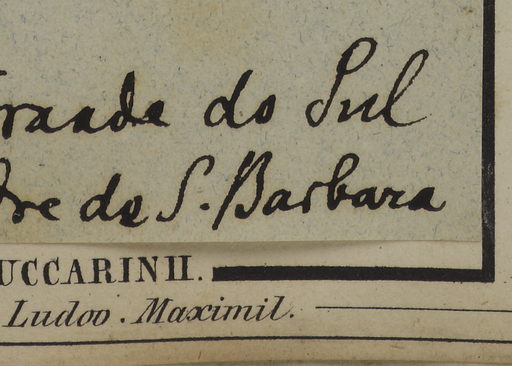 rande do Sul
re de S. Barbara
UCCARINII.
Ludov. Maximil.